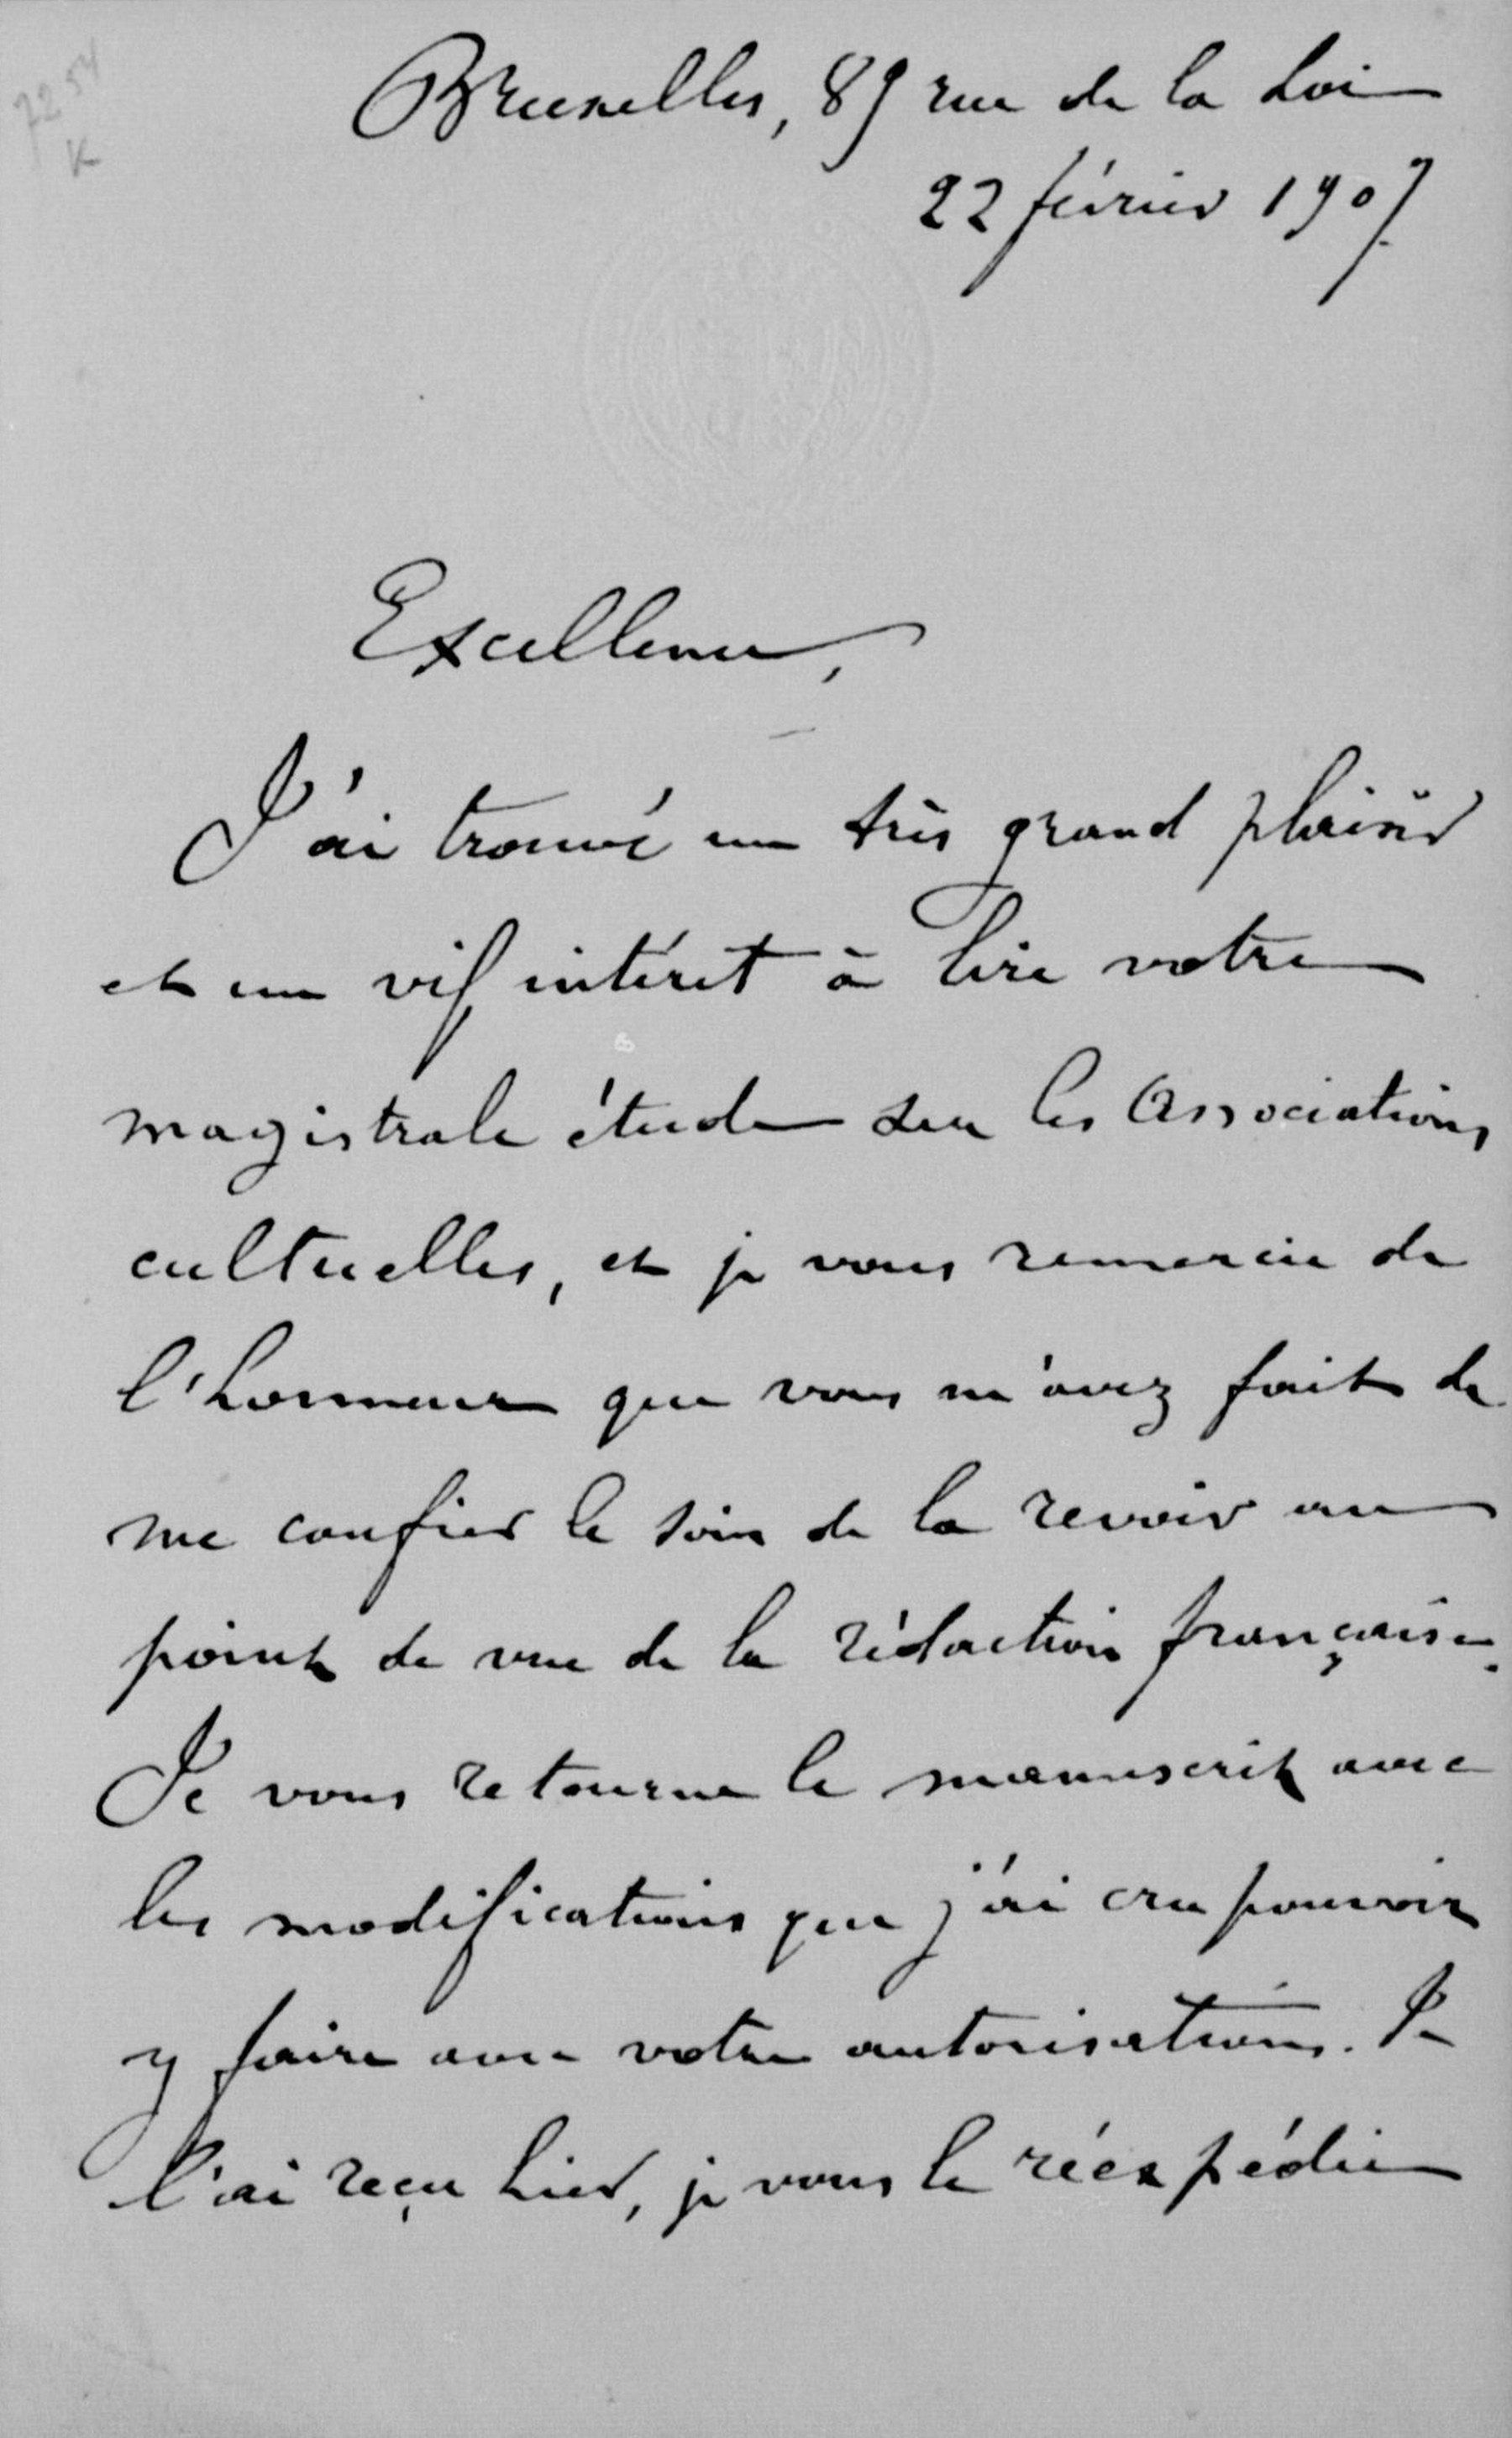 7254
K
Bruxelles, 89 rue de la Loi
22 février 1907.
Excellence,
J'ai trouvé un très grand plaisir
et un vif intérêt à lire votre
magistrale étude sur les Associations
cultuelles, et je vous remercie de
l'honneur que vous m'avez fait de
me confier le soin de la revoir au
point de vue de la rédaction française.
Je vous retourne le manuscrit avec
les modifications que j'ai cru pouvoir
y faire avec votre autorisation. Je
l'ai reçu hier, je vous le réexpédie